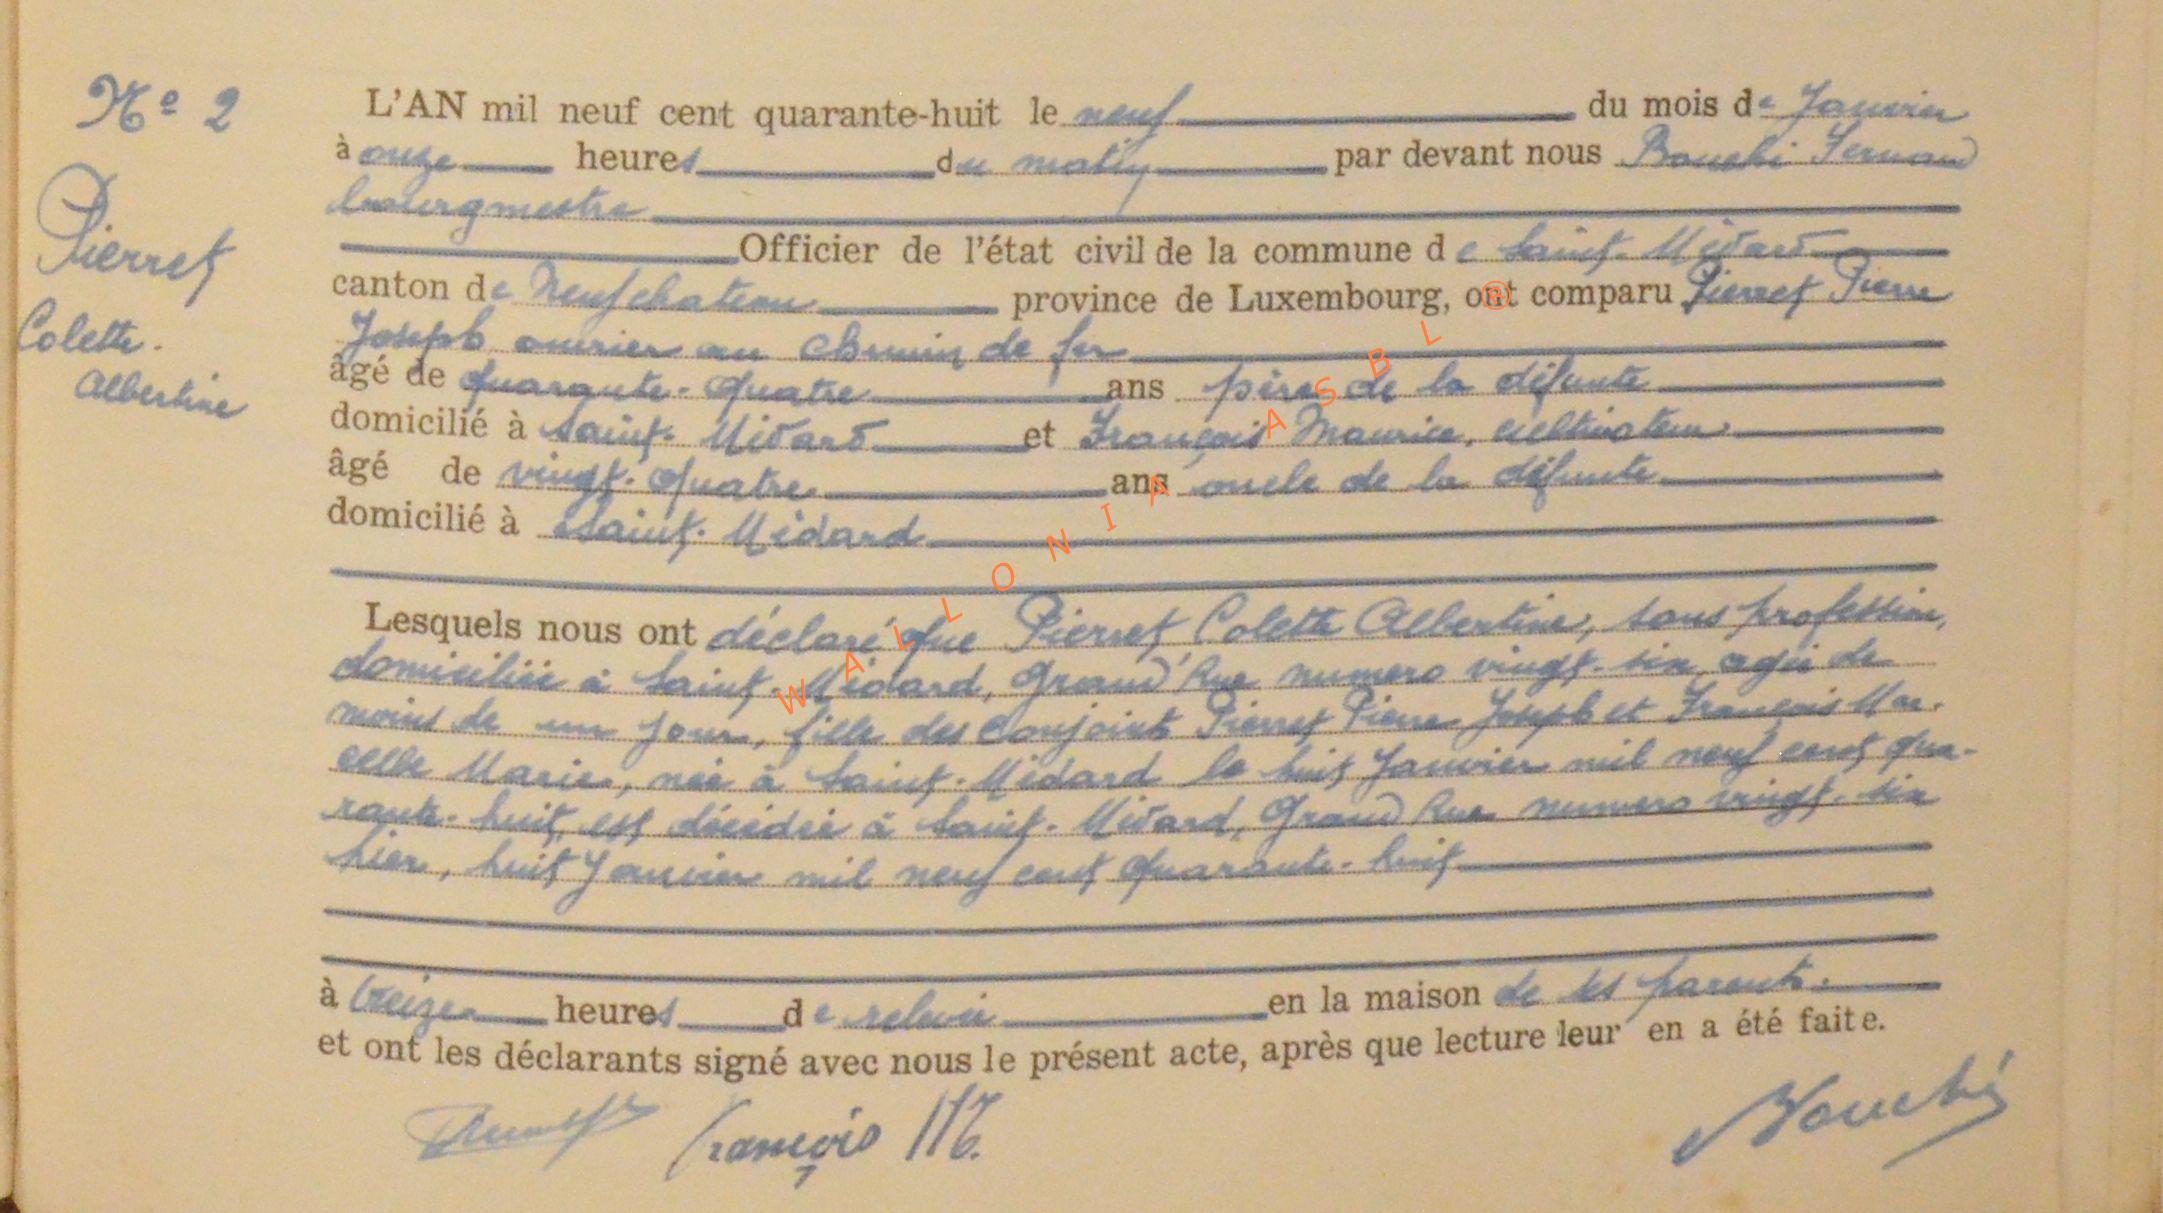 Nº 2
Pierret
Colette
Albertine
L'AN mil neuf cent quarante-huit le neuf du mois de Janvier
à onze heures du matin par devant nous Bouché Fernand
bourgmestre
Officier de l'état civil de la commune de Saint-Médard
canton de Neufchateau province de Luxembourg, ont comparu Pierret Pierre
Joseph, ouvrier au chemin de fer
âgé de quarante-quatre ans père de la défunte
domicilié à Saint-Médard et François Maurice, cultivateur
âgé de vingt-quatre ans oncle de la défunte
domicilié à Saint-Médard
Lesquels nous ont déclaré que Pierret Colette Albertine, sans profession,
domiciliée à Saint-Médard, Grand'Rue numero vingt-six, agée de
moins de un jour, fille des conjoints Pierret Pierre Joseph et François Mar-
celle Marie, née à Saint-Médard le huit Janvier mil neuf cent qua-
rante-huit, est décédée à Saint-Médard, Grand Rue numero vingt-six
hier, huit Janvier mil neuf cent quarante-huit
à treize heures de relevée en la maison de ses parents.
et ont les déclarants signé avec nous le présent acte, après que lecture leur en a été faite.
François M. Bouché
WALLONIA ASBL ®